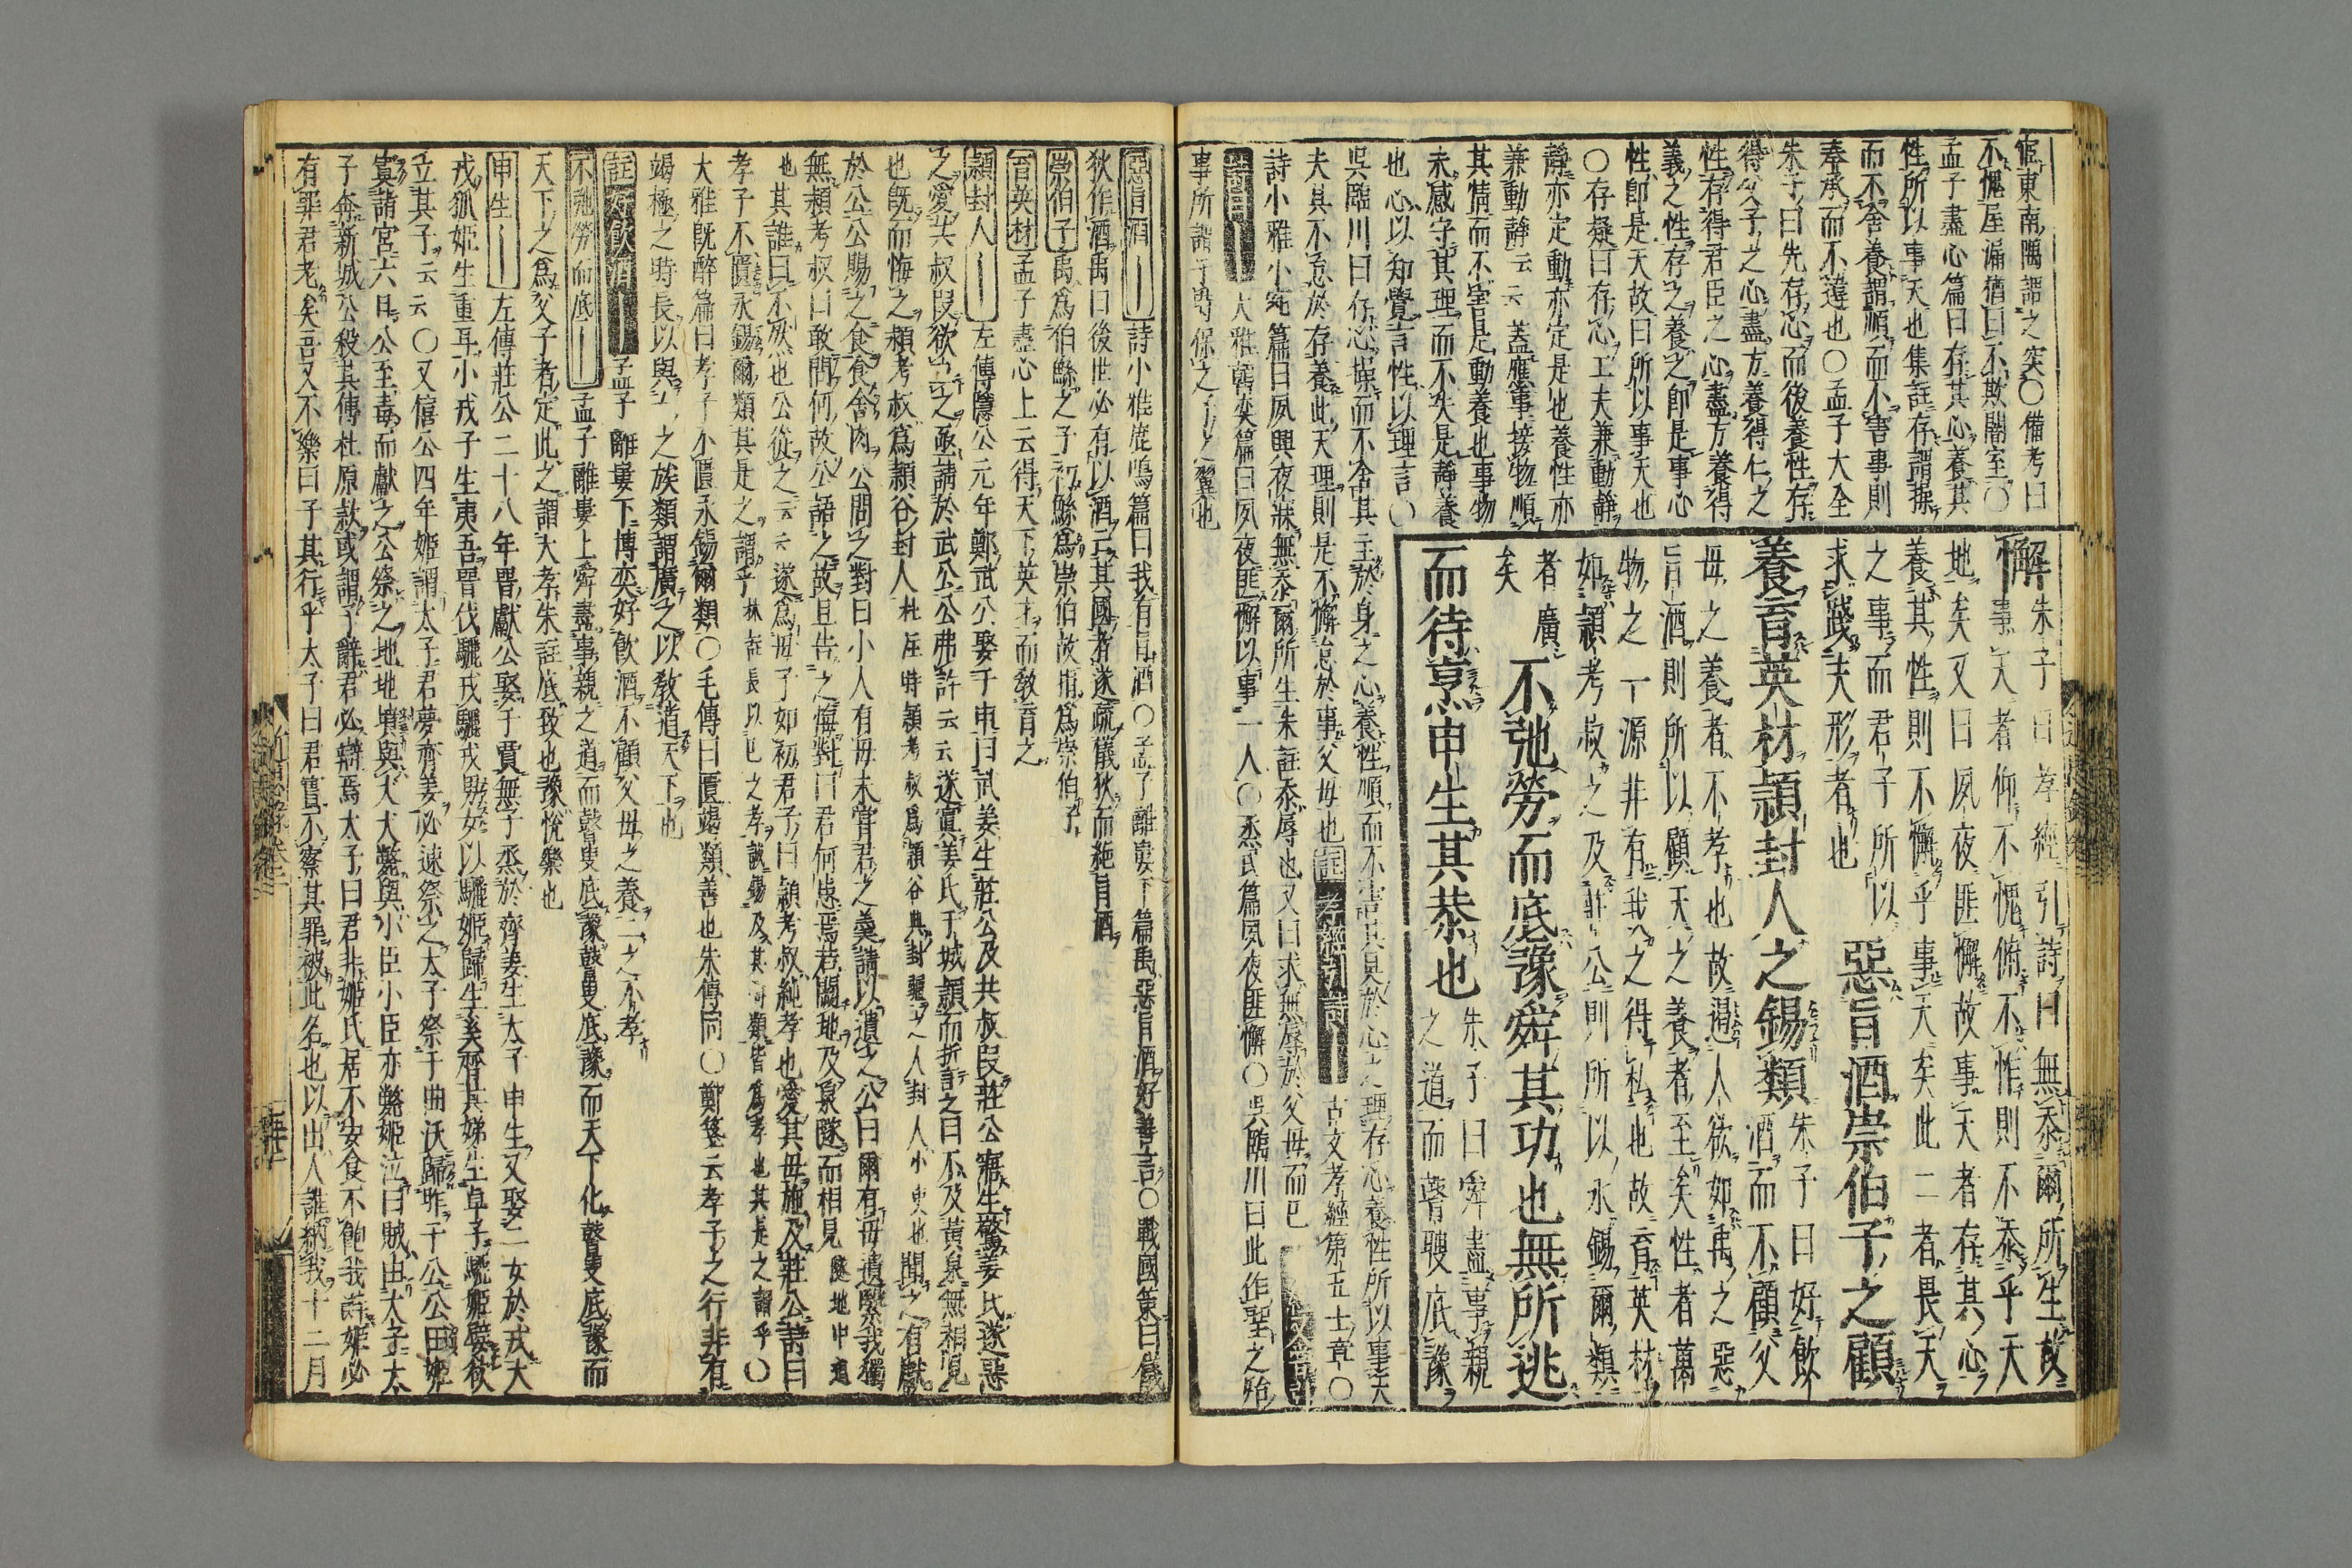 宧東南隅謂之窔〇備考曰
不愧屋漏猶曰不欺闇室〇
孟子盡心篇曰存其心養其
性所以事天也集註存謂操
而不舍養謂順而不害事則
奉承而不違也〇孟子大全
朱子曰先存心而後養性存
得父子之心盡方養得仁之
性存得君臣之心盡方養得
義之性存之養之即是事心
性即是天故曰所以事天也
〇存疑曰存心工夫兼動靜
靜亦定動亦定是也養性亦
兼動靜云云蓋應事接物順
其情而不害是動養也事物
未感守其理而不失是靜養
也心以知覺言性以理言〇
吳臨川曰存心操而不舍其主於身之心養性順而不害其具於心之理存心養性所以事天
夫其不怠於存養此天理則是不懈怠於事父母也 註孝經引詩 古文孝經第五士章〇
詩小雅小宛篇曰夙興夜寐無忝爾所生朱註忝辱也又曰求無辱於父母而已
大雅烝民篇曰夙夜匪懈以事一人〇烝民篇夙夜匪懈〇吳臨川曰此作聖之
事所謂于時保之子之翼也
懈 朱子曰孝經引詩曰無忝爾所生故
事天者仰不愧俯不怍則不忝乎天
地矣又曰夙夜匪懈故事天者存其心
養其性則不懈乎事天矣此二者畏天
之事而君子所以
求踐夫形者也
惡旨酒崇伯子之顧
養育英材潁封人之錫類
朱子曰好飲
酒而不顧父
母之養者不孝也故遏人欲如禹之惡
旨酒則所以顧天之養者至矣性者萬
物之一源非有我之得私也故育英材
如潁考叔之及莊公則所以永錫爾類
者廣
矣
不弛勞而底豫舜其功也無所逃
而待烹申生其恭也
朱子曰舜盡事親
之道而瞽瞍底豫
惡旨酒 詩小雅鹿鳴篇曰我有旨酒〇孟子離婁下篇禹惡旨酒好善言〇戰國策曰儀
狄作酒禹曰後世必有以酒亡其國者遂疏儀狄而絕旨酒
崇伯子 禹爲伯鯀之子初鯀爲崇伯故指爲崇伯子
育英材 孟子盡心上云得天下英才而敎育之
潁封人 左傳隱公元年鄭武公娶于申曰武姜生莊公及共叔段莊公寤生驚姜氏遂惡
之愛共叔段欲立之亟請於武公公弗許云云遂寘姜氏于城潁而誓之曰不及黃泉無相見
也旣而悔之潁考叔爲潁谷封人 杜註時潁考叔爲潁谷典封疆之人封人小吏也 聞之有獻
於公公賜之食食舍肉公問之對曰小人有母未嘗君之羹請以遺之公曰爾有母遺繄我獨
無潁考叔曰敢問何故公語之故且告之悔對曰君何患焉若闕地及泉隧而相見 隧地中道
也 其誰曰不然也公從之云云遂爲母子如初君子曰潁考叔純孝也愛其母施及莊公詩曰
孝子不匱永錫爾類其是之謂乎 林註長以己之孝誠錫及其疇類皆爲孝也其是之謂乎 〇
大雅旣醉篇曰孝子不匱永錫爾類〇毛傳曰匱竭類善也朱傳同〇鄭箋云孝子之行非有
竭極之時長以與之之族類謂廣之以敎道天下也
註好飲酒 孟子離婁下博奕好飲酒不顧父母之養二之不孝
不弛勞而底 孟子離婁上舜盡事親之道而瞽叟底豫瞽叟底豫而天下化瞽叟底豫而
天下之爲父子者定此之謂大孝朱註底致也豫悅樂也
申生 左傳莊公二十八年晉獻公娶于賈無子烝於齊姜生太子申生又娶二女於戎大
戎狐姬生重耳小戎子生夷吾晉伐驪戎驪戎男女以驪姬歸生奚齊其娣生卓子驪姬嬖欲
立其子云云〇又僖公四年姬謂太子君夢齊姜必速祭之太子祭于曲沃歸胙于公公田姬
寘諸宮六日公至毒而獻之公祭之地地墳與犬犬斃與小臣小臣亦斃姬泣曰賊由太子太
子奔新城公殺其傅杜原款或謂子辭君必辯焉太子曰君非姬氏居不安食不飽我辭姬必
有罪君老矣吾又不樂曰子其行乎太子曰君實不察其罪被此名也以出人誰納我十二月